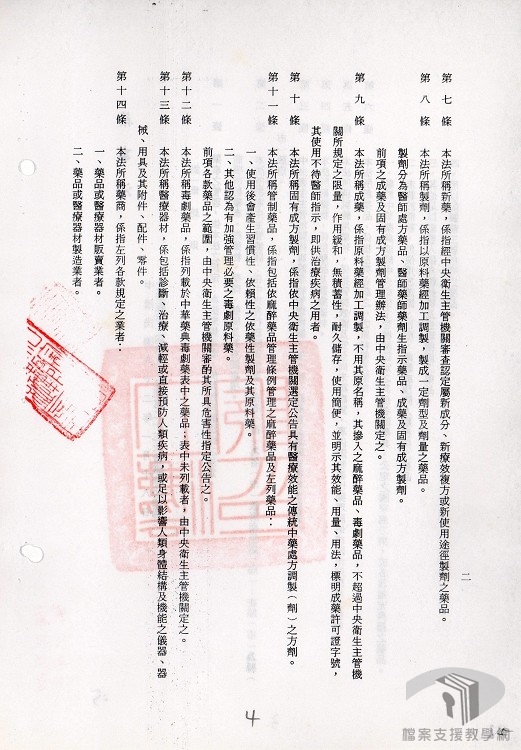 第七條　本法所稱新藥，係指經中央衛生主管機關審查認定屬新成分、新療效複方或新使用途徑製劑之藥品。
第八條　本法所稱製劑，係指以原料藥經加工調製，製成一定劑型及劑量之藥品。
製劑分為醫師處方藥品、醫師藥師藥劑生指示藥品、成藥及固有成方製劑。
前項之成藥及固有成方製劑管理辦法，由中央衛生主管機關定之。
第九條　本法所稱成藥，係指原料藥經加工調製，不用其原名稱，其摻入之麻醉藥品、毒劇藥品，不超過中央衛生主管機
關所規定之限量，作用緩和，無積蓄性，耐久儲存，使用簡便，並明示其效能、用量、用法，標明成藥許可證字號，
其使用不待醫師指示，即供治療疾病之用者。
第十條　本法所稱固有成方製劑，係指依中央衛生主管機關選定公告具有醫療效能之傳統中藥處方調製（劑）之方劑。
第十一條　本法所稱管制藥品，係指包括依麻醉藥品管理條例管理之麻醉藥品及左列藥品：
一、使用後會產生習慣性、依賴性之依藥性製劑及其原料藥。
二、其他認為有加強管理必要之毒劇原料藥。
前項各款藥品之範圍，由中央衛生主管機關審酌其所具危害性指定公告之。
第十二條　本法所稱毒劇藥品，係指列載於中華藥典毒劇藥表中之藥品；表中未列載者，由中央衛生主管機關定之。
第十三條　本法所稱醫療器材，係包括診斷、治療、減輕或直接預防人類疾病，或足以影響人類身體結構及機能之儀器、器
械、用具及其附件、配件、零件。
第十四條　本法所稱藥商，係指左列各款規定之業者：
一、藥品或醫療器材販賣業者。
二、藥品或醫療器材製造業者。
二
4
檔案支援教學網